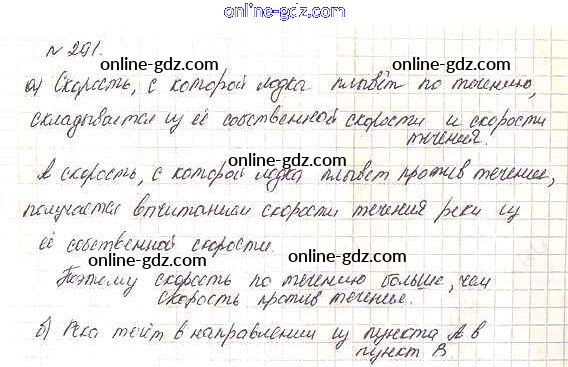 online-gdz.com
№ 291.
online-gdz.com online-gdz.com
а) Скорость, с которой лодка плывёт по течению,
складывается из её собственной скорости и скорости
течения.
online-gdz.com
А скорость, с которой лодка плывёт против течение,
получается вычитанием скорости течения реки из
её собственной скорости.
online-gdz.com
Поэтому скорость по течению больше, чем
скорость против течение.
online-gdz.com online-gdz.com
б) Река течёт в направлении из пункта А в
пункт В
online-gdz.com